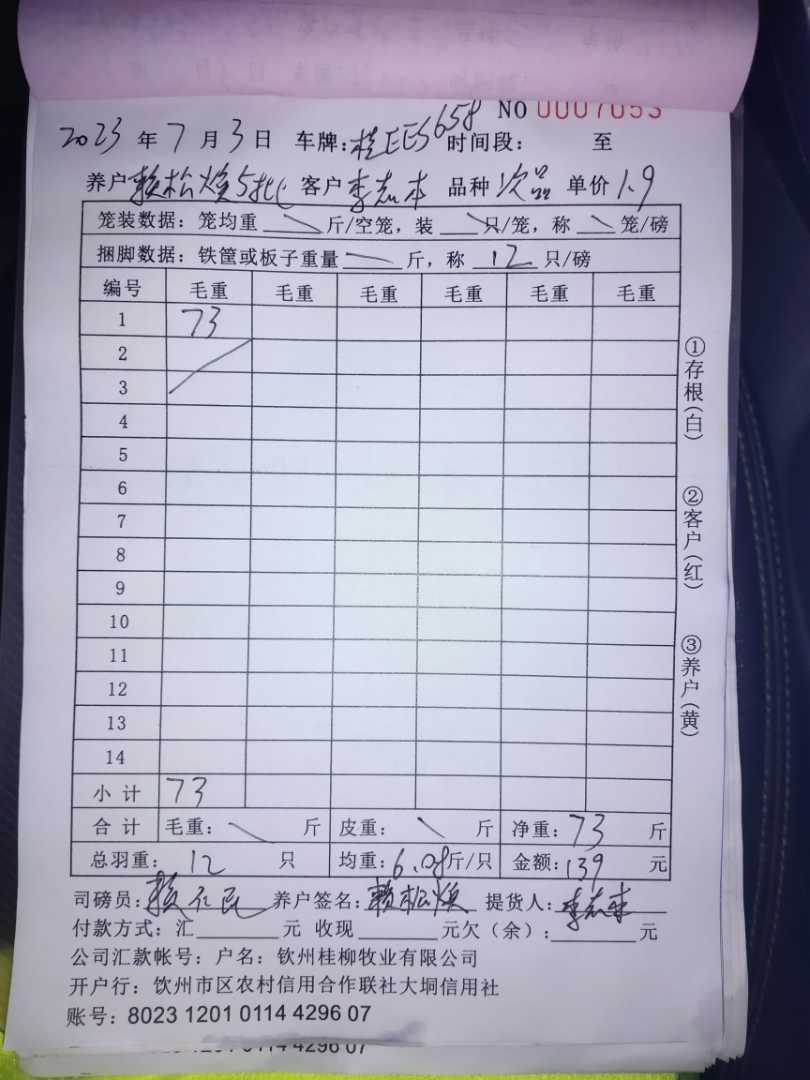 NO 0007053
2023 年 7 月 3 日 车牌:桂EES658 时间段: 至
养户 赖松焕5批 客户 李志本 品种 次品 单价 1.9
笼装数据: 笼均重 斤/空笼, 装 只/笼, 称 笼/磅
捆脚数据: 铁筐或板子重量 斤, 称 12 只/磅
编号 毛重 毛重 毛重 毛重 毛重 毛重
1 73
2
3
4
5
6
7
8
9
10
11
12
13
14
小 计 73
合 计 毛重: 斤 皮重: 斤 净重: 73 斤
总羽重: 12 只 均重: 6.08 斤/只 金额: 139 元
司磅员: 养户签名: 赖松焕 提货人:
付款方式: 汇 元 收现 元欠(余): 元
公司汇款帐号: 户名: 钦州桂柳牧业有限公司
开户行: 钦州市区农村信用合作联社大垌信用社
账号: 8023 1201 0114 4296 07
①存根(白)
②客户(红)
③养户(黄)